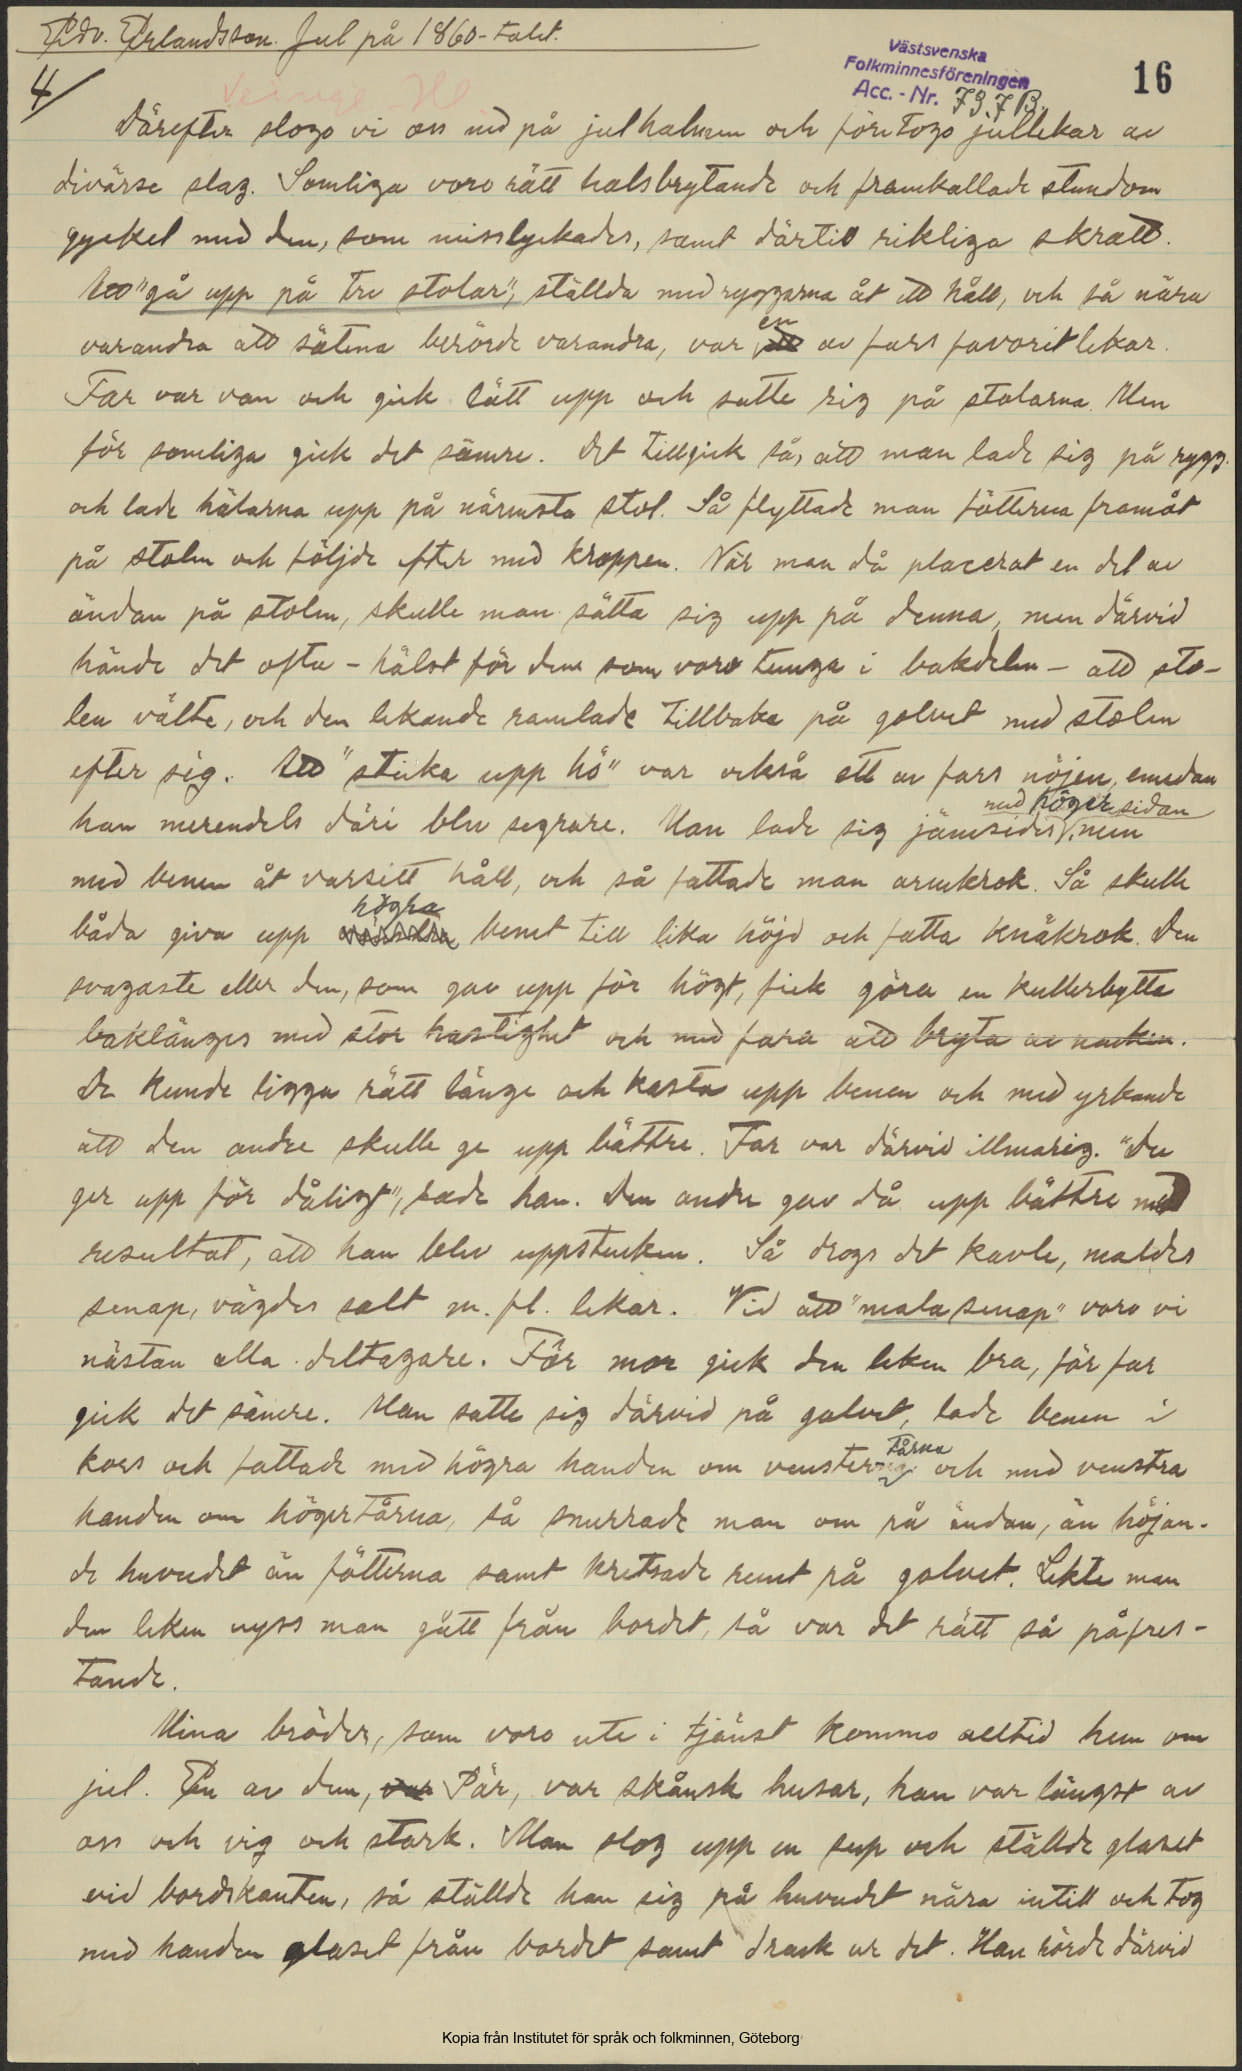 Edv. Erlandsson. Jul på 1860-talet.
4/
Veinge Hl
Västsvenska
Folkminnesföreningen
Acc.-Nr. 737 B.
16
Därefter slogo vi oss ned på julhalmen och företogo jullekar av
divärse slag. Somliga voro rätt halsbrytande och framkallade stundom
gyckel med den, som misslyckades, samt därtill rikliga skratt.
Att "gå upp på tre stolar", ställda med ryggarna åt ett håll, och så nära
varandra att sätena berörde varandra, var en av fars favoritlekar.
Far var van och gick lätt upp och satte sig på stolarna. Men
för somliga gick det sämre. Det tillgick så, att man lade sig på rygg.
och lade hälarna upp på närmsta stol. Så flyttade man fötterna framåt
på stolen och följde efter med kroppen. När man då placerat en del av
ändan på stolen, skulle man sätta sig upp på denna, men därvid
hände det ofta - hälst för dem som voro tunga i bakdelen - att sto-
len välte, och den lekande ramlade tillbaka på golvet med stolen
efter sig. Att "sticka upp hö" var också ett av fars nöjen, emedan
han merendels däri blev segrare. Man lade sig jämsides med höger sidan, men
med benen åt varsitt håll, och så fattade man armkrok. Så skulle
båda giva upp högra benet till lika höjd och fatta knäkrok. Den
svagaste eller den, som gav upp för högt, fick göra en kullerbytta
baklänges med stor hastighet och med fara att bryta av nacken.
De kunde ligga rätt länge och kasta upp benen och med yrkande
att den andre skulle ge upp bättre. Far var därvid illmarig. "Du
ger upp för dåligt", sade han. Den andre gav då upp bättre med
resultat, att han blev uppstucken. Så drogs det kavle, maldes
senap, vägdes salt m. fl. lekar. Vid att "mala senap" voro vi
nästan alla deltagare. För mor gick den leken bra, för far
gick det sämre. Man satte sig därvid på golvet, lade benen i
kors och fattade med högra handen om venstertårna och med venstra
handen om högertårna, så snurrade man om på ändan, än höjan-
de huvudet än fötterna samt kretsade runt på golvet. Lekte man
den leken nyss man gått från bordet, så var det rätt så påfres-
tande.
Mina bröder, som voro ute i tjänst kommo alltid hem om
jul. En av dem, var Pär, var skånsk husar, han var längst av
oss och vig och stark. Man slog upp en sup och ställde glaset
vid bordskanten, så ställde han sig på huvudet nära intill och tog
med handen glaset från bordet samt drack ur det. Han rörde därvid
Kopia från Institutet för språk och folkminnen, Göteborg